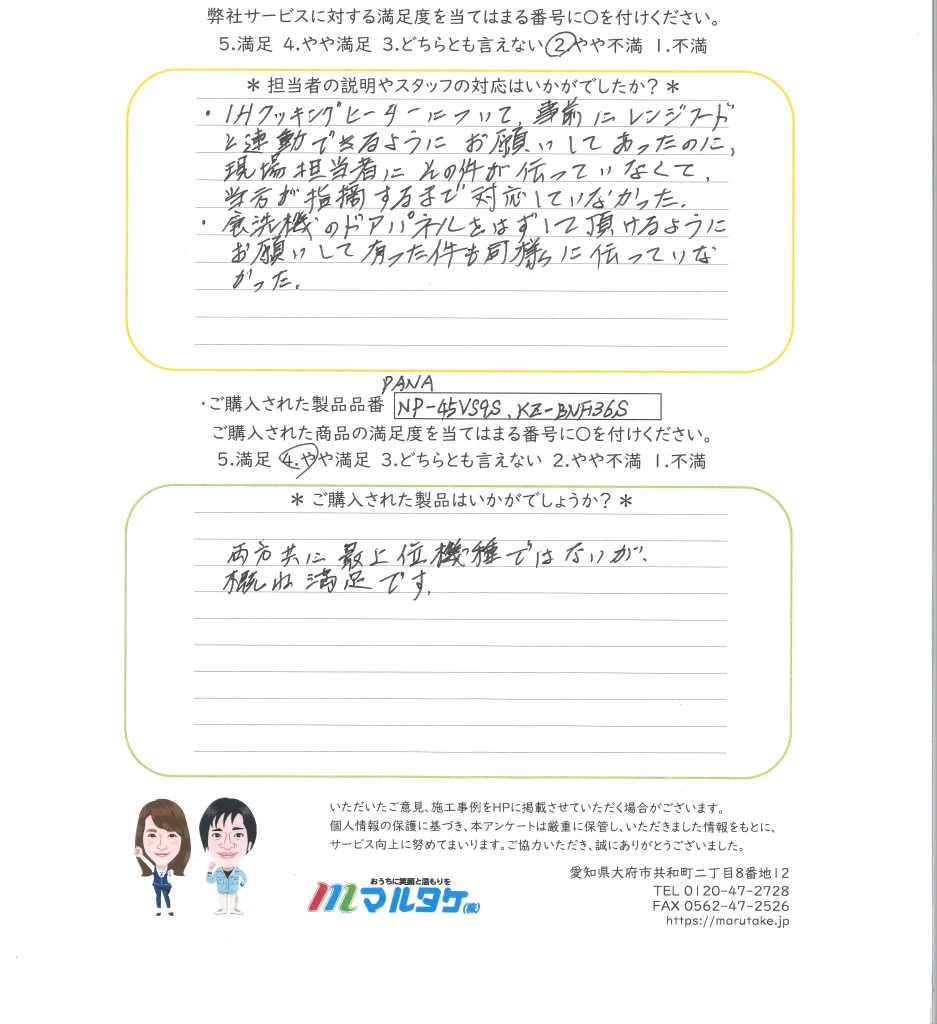 弊社サービスに対する満足度を当てはまる番号に○を付けください。
5.満足 4.やや満足 3.どちらとも言えない 2.やや不満 1.不満
* 担当者の説明やスタッフの対応はいかがでしたか？ *
・IHクッキングヒーターについて、事前にレンジフード
と連動できるようにお願いしてあったのに、
現場担当者にその件が伝っていなくて、
当方が指摘するまで対応していなかった。
・食洗機のドアパネルをはずして頂けるように
お願いして有った件も同様に伝っていな
かった。
PANA
・ご購入された製品品番 NP-45VS9S、KZ-BNH36S
ご購入された商品の満足度を当てはまる番号に○を付けください。
5.満足 4.やや満足 3.どちらとも言えない 2.やや不満 1.不満
* ご購入された製品はいかがでしょうか？ *
両方共に最上位機種ではないが、
概ね満足です。
いただいたご意見、施工事例をHPに掲載させていただく場合がございます。
個人情報の保護に基づき、本アンケートは厳重に保管し、いただきました情報をもとに、
サービス向上に努めてまいります。ご協力いただき、誠にありがとうございました。
おうちに笑顔と温もりを
マルタケ(株)
愛知県大府市共和町二丁目8番地12
TEL 0120-47-2728
FAX 0562-47-2526
https://marutake.jp